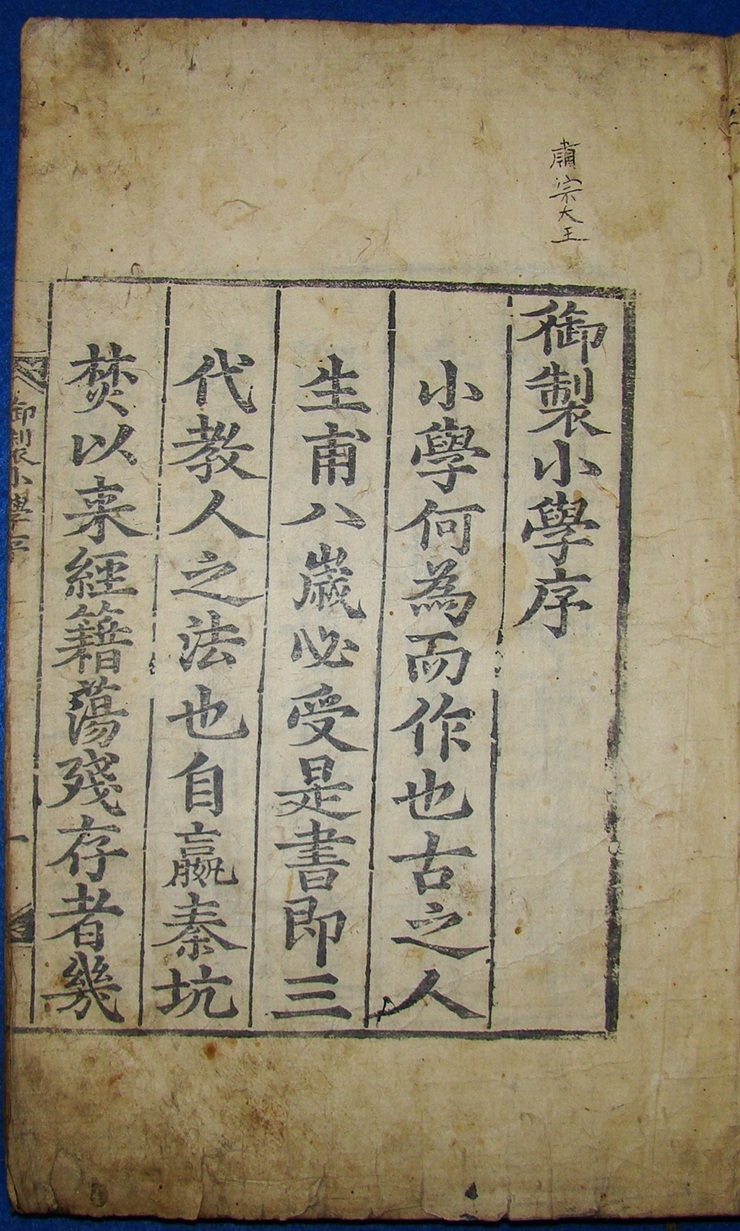 肅宗大王
御製小學序
小學何為而作也古之人
生甫八歲必受是書即三
代教人之法也自嬴秦坑
焚以来經籍蕩殘存者幾
御製小學序
一